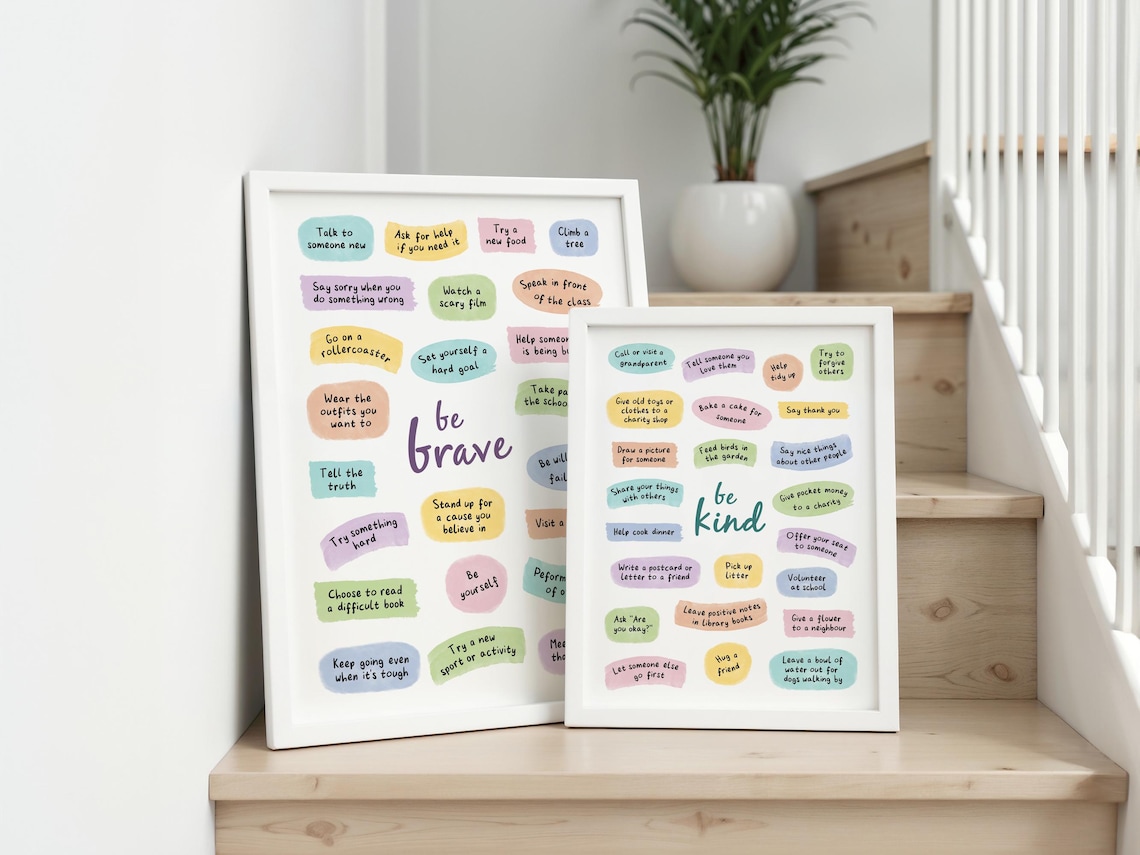 Talk to
someone new
Ask for help
if you need it
Try a
new food
Climb a
tree
Say sorry when you
do something wrong
Watch a
scary film
Speak in front
of the class
Go on a
rollercoaster
Set yourself a
hard goal
Help
is being
Wear the
outfits you
want to
Take
the
be
brave
Tell the
truth
Be
Stand up for
a cause you
believe in
Try something
hard
Visit a
Be
yourself
Peform
of
Choose to read
a difficult book
Keep going even
when it's tough
Try a new
sport or activity
Call or visit a
grandparent
Tell someone you
love them
Help
tidy up
Try to
forgive
others
Give old toys or
clothes to a
charity shop
Bake a cake for
someone
Say thank you
Draw a picture
for someone
Feed birds in
the garden
Say nice things
about other people
Share your things
with others
be
kind
Give pocket money
to a charity
Help cook dinner
Offer your seat
to someone
Write a postcard or
letter to a friend
Pick up
litter
Volunteer
at school
Ask "Are
you okay?"
Leave positive notes
in library books
Give a flower
to a neighbour
Let someone else
go first
Hug a
friend
Leave a bowl of
water out for
dogs walking by